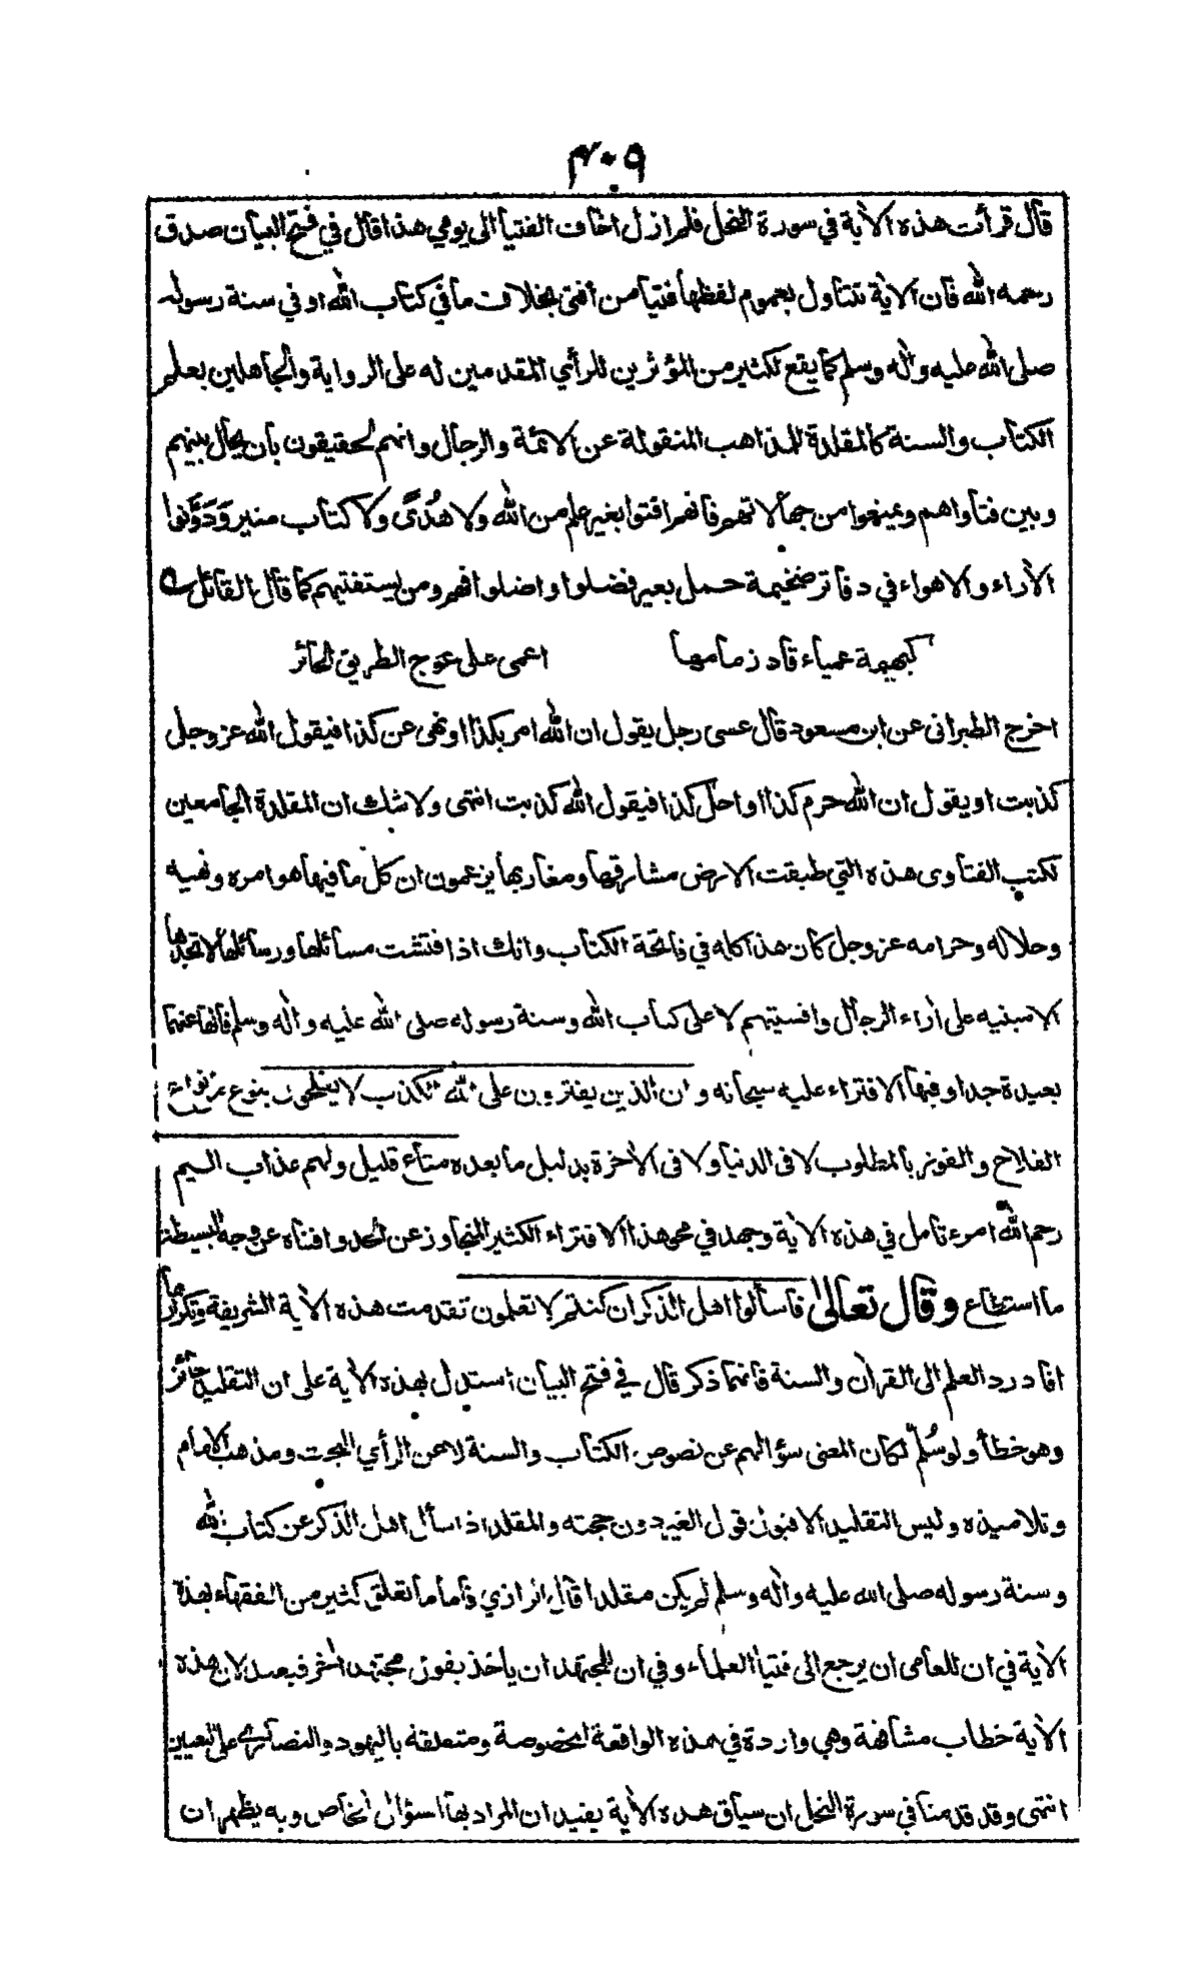 ٣٠٩
قال قرأت هذه الآية في سورة النحل فلم ازل اخاف الفتيا الى يومي هذا قال في فتح البيان صدق
رحمه الله فان الآية تتناول بعموم لفظها فتيا من أفتى بخلاف ما في كتاب الله او في سنة رسوله
صلى الله عليه وآله وسلم كما يقع لكثير من المؤثرين للرأي المقدمين له على الرواية والجاهلين بعلم
الكتاب والسنة كالمقلدة للمذاهب المنقولة عن الائمة والرجال وانهم لحقيقون بان يحال بينهم
وبين فتاواهم ويمنعوا من جهالاتهم فانهم افتوا بغير علم من الله ولا هُدًى ولا كتاب منير وَدَوَّنوا
الآراء والاهواء في دفاتر ضخيمة حمل بعير فضلوا واضلوا فهم ومن يستفتيهم كما قال القائل
كبهيمة عمياء قاد زمامها اعمى على عوج الطريق الحائر
اخرج الطبرانى عن ابن مسعود قال عسى رجل يقول ان الله امر بكذا او نهى عن كذا فيقول الله عز وجل
كذبت او يقول ان الله حرم كذا او احل كذا فيقول الله كذبت انتهى ولا شك ان المقلدة الجامعين
لكتب الفتاوى هذه التي طبقت الارض مشارقها ومغاربها يزعمون ان كل ما فيها هو امره ونهيه
وحلاله وحرامه عز وجل كان هذا كله في فاتحة الكتاب وانك اذا فتشت مسائلها ورسائلها لا تجدها
الا مبنيه على آراء الرجال واقسيتهم لا على كتاب الله وسنة رسوله صلى الله عليه وآله وسلم فانها عنهما
بعيدة جدا وفيها الافتراء عليه سبحانه وان الذين يفترون على الله الكذب لا يفلحون بنوع من انواع
الفلاح والفوز بالمطلوب لا فى الدنيا ولا فى الآخرة بدليل ما بعده متاع قليل ولهم عذاب اليم
رحم الله امرء تامل في هذه الآية وجهد في محو هذا الافتراء الكثير المتجاوز عن الحد وافناه عن وجه البسيطة
ما استطاع وقال تعالى فاسألوا اهل الذكر ان كنتم لا تعلمون تقدمت هذه الآية الشريفة وتكرارها
افاد رد العلم الى القرآن والسنة فانهما ذكر قال في فتح البيان استدل بهذه الآية على ان التقليد جائز
وهو خطأ ولو سُلم لكان المعنى سؤالهم عن نصوص الكتاب والسنة لا عن الرأي البحت ومذهب الامام
وتلاميذه وليس التقليد الا قبول قول الغير دون حجته والمقلد اذا سأل اهل الذكر عن كتاب الله
وسنة رسوله صلى الله عليه وآله وسلم لم يكن مقلدا قال الرازي واما ما تعلق كثير من الفقهاء بهذه
الآية في ان للعامى ان يرجع الى فتيا العلماء وفي ان للمجتهد ان ياخذ بقول مجتهد آخر فبعيد لان هذه
الآية خطاب مشافهة وهي واردة في هذه الواقعة المخصوصة ومتعلقة باليهود والنصارى على التعيين
انتهى وقد قدمنا في سورة النحل ان سياق هذه الآية يفيد ان المراد بها السؤال الخاص وبه يظهر ان